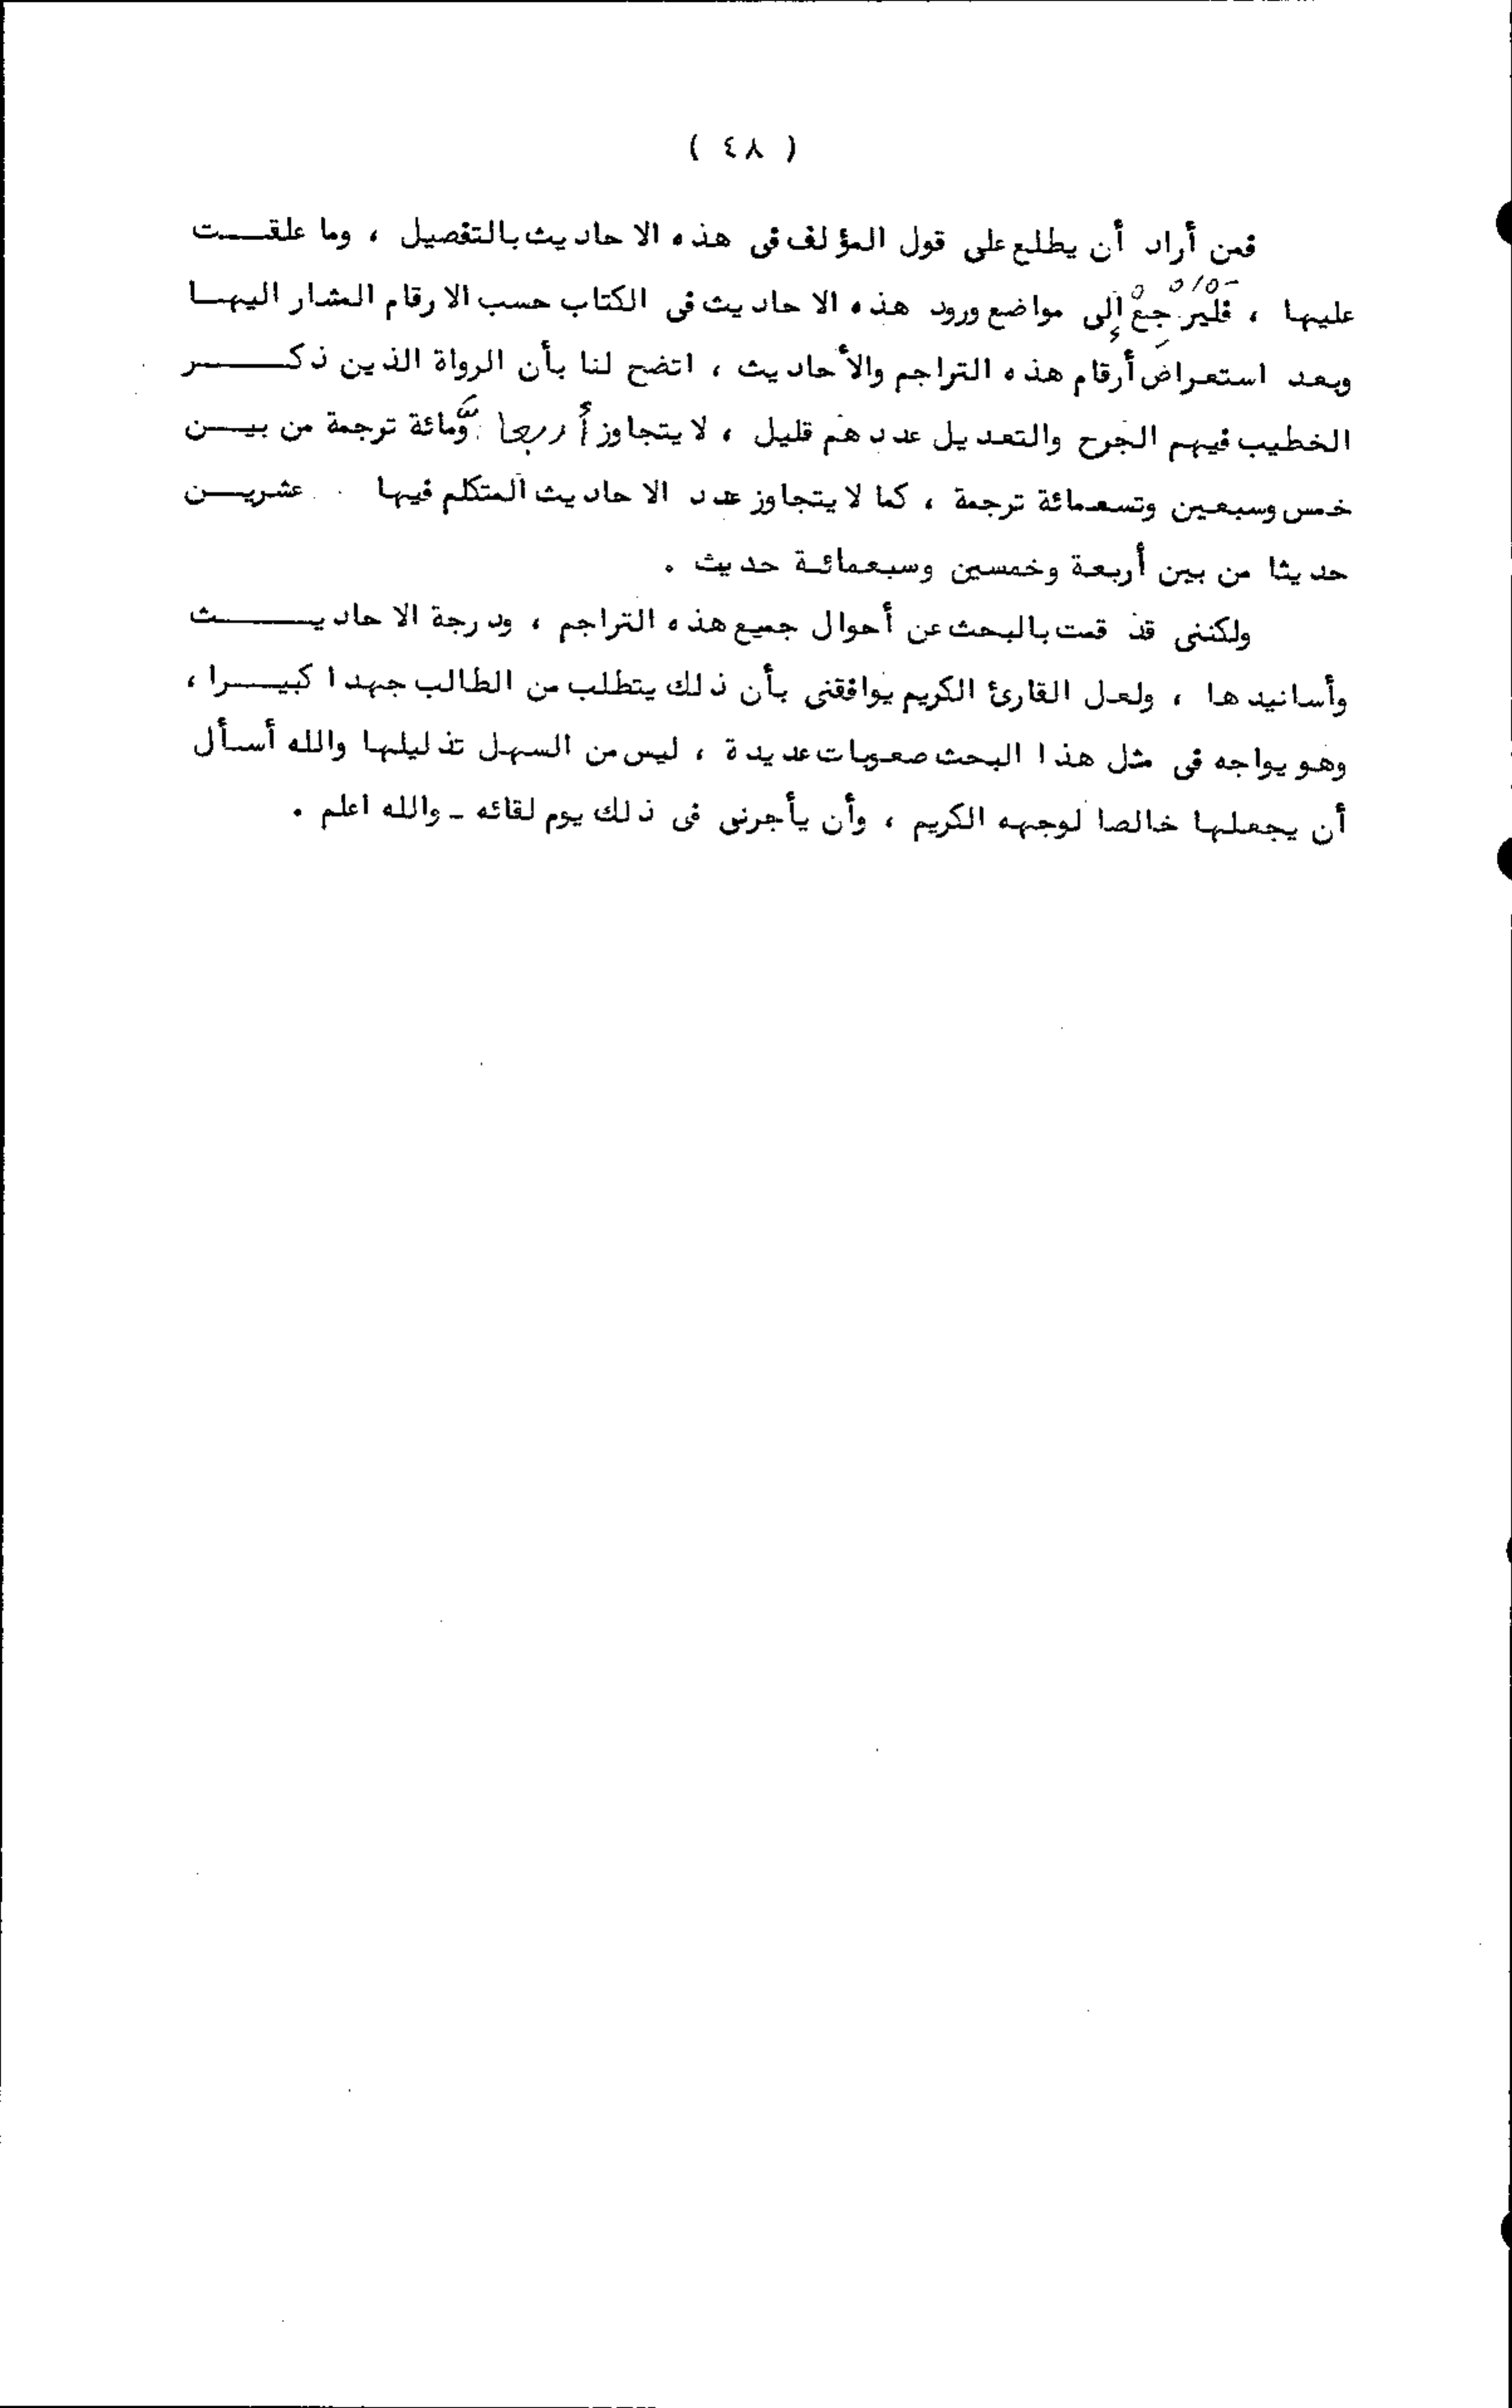 ( ٤٨ )
فمن أراد أن يطلع على قول المؤلف فى هذه الاحاديث بالتفصيل ، وما علقت
عليها ، فَلْيَرْجِعْ إِلى مواضع ورود هذه الاحاديث فى الكتاب حسب الارقام المشار اليها
وبعد استعراض أرقام هذه التراجم والأحاديث ، اتضح لنا بأن الرواة الذين ذكر
الخطيب فيهم الجرح والتعديل عددهم قليل ، لا يتجاوز أربعا ومائة ترجمة من بين
خمس وسبعين وتسعمائة ترجمة ، كما لا يتجاوز عدد الاحاديث المتكلم فيها عشرين
حديثا من بين أربعة وخمسين وسبعمائة حديث .
ولكننى قد قمت بالبحث عن أحوال جميع هذه التراجم ، ودرجة الاحاديث
وأسانيدها ، ولعل القارئ الكريم يوافقنى بأن ذلك يتطلب من الطالب جهدا كبيرا ،
وهو يواجه فى مثل هذا البحث صعوبات عديدة ، ليس من السهل تذليلها والله أسأل
أن يجعلها خالصا لوجهه الكريم ، وأن يأجرنى فى ذلك يوم لقائه ـ والله اعلم .